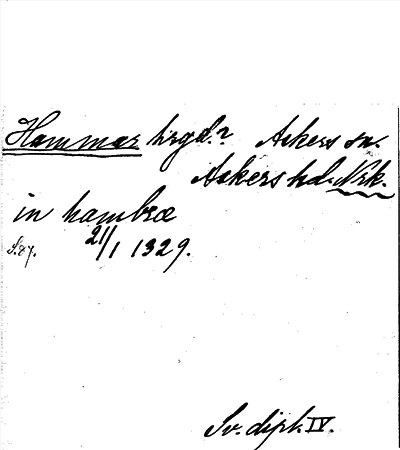 Hammar hrgd.? Askers sn.
Askers hd. Nrk.
in hambræ
S. 87. 21/1 1329.
Sv. dipl. IV.